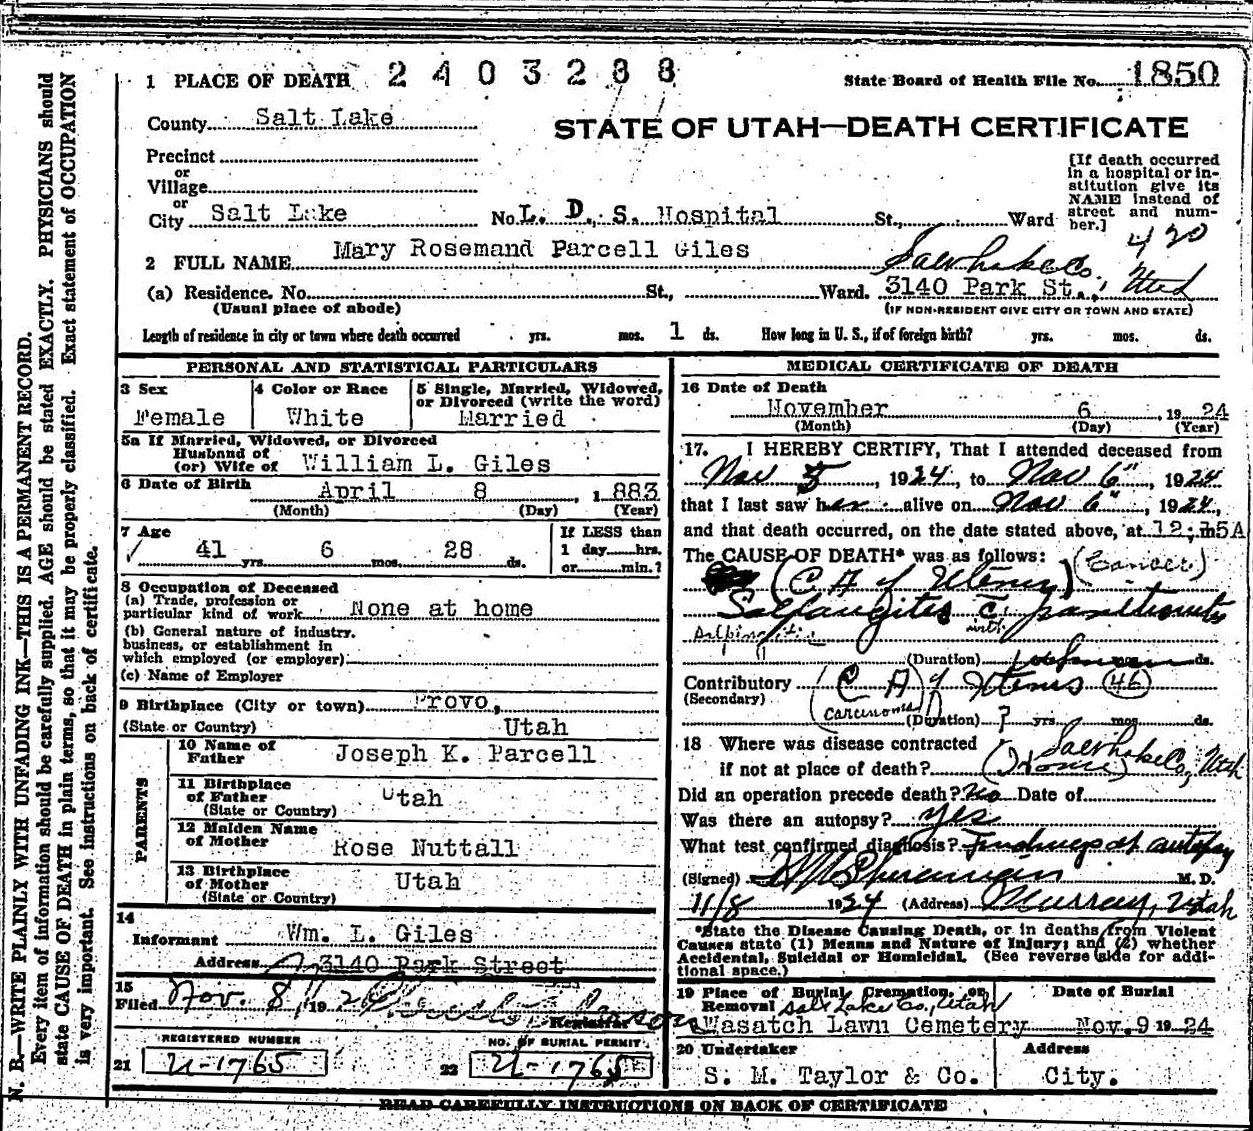 1 PLACE OF DEATH 2403288 State Board of Health File No. 1850
County Salt Lake
STATE OF UTAH—DEATH CERTIFICATE
Precinct
or
Village
or
City Salt Lake No. L. D. S. Hospital St., Ward
[If death occurred
in a hospital or in-
stitution give its
NAME instead of
street and num-
ber.]
420
2 FULL NAME Mary Rosemand Parcell Giles
Salt Lake Co.
(a) Residence. No. St., Ward. 3140 Park St., Utah
(Usual place of abode) (IF NON-RESIDENT GIVE CITY OR TOWN AND STATE)
Length of residence in city or town where death occurred yrs. mos. 1 ds. How long in U. S., if of foreign birth? yrs. mos. ds.
PERSONAL AND STATISTICAL PARTICULARS
3 Sex
Female
4 Color or Race
White
5 Single, Married, Widowed,
or Divorced (write the word)
Married
5a If Married, Widowed, or Divorced
Husband of
(or) Wife of William L. Giles
6 Date of Birth April 8, 1883
(Month) (Day) (Year)
7 Age
41 yrs. 6 mos. 28 ds.
If LESS than
1 day hrs.
or min.?
8 Occupation of Deceased
(a) Trade, profession or
particular kind of work None at home
(b) General nature of industry,
business, or establishment in
which employed (or employer)
(c) Name of Employer
9 Birthplace (City or town) Provo,
(State or Country) Utah
PARENTS
10 Name of
Father Joseph K. Parcell
11 Birthplace
of Father Utah
(State or Country)
12 Maiden Name
of Mother Rose Nuttall
13 Birthplace
of Mother Utah
(State or Country)
14
Informant Wm. L. Giles
Address 3140 Park Street
15
Filed Nov. 8, 192
Registrar
REGISTERED NUMBER
21 U-1765
NO. OF BURIAL PERMIT
22 U-1765
MEDICAL CERTIFICATE OF DEATH
16 Date of Death
November 6, 1924
(Month) (Day) (Year)
17. I HEREBY CERTIFY, That I attended deceased from
Nov 5, 1924, to Nov 6", 1924
that I last saw her alive on Nov 6", 1924,
and that death occurred, on the date stated above, at 12:15A
The CAUSE OF DEATH* was as follows: (Cancer)
(C A of Uterus)
Salpangites c̄ peritonitis
with
Salpingitis
(Duration) mos. ds.
Contributory (C A) of Uterus (46)
(Secondary) carcinoma
(Duration) ? yrs. mos. ds.
18 Where was disease contracted Salt Lake Co., Utah
if not at place of death? (Home)
Did an operation precede death? No Date of
Was there an autopsy? yes
What test confirmed diagnosis? Findings at autopsy
(Signed) M. D.
11/8 1924 (Address) Murray, Utah
*State the Disease Causing Death, or in deaths from Violent
Causes state (1) Means and Nature of Injury; and (2) whether
Accidental, Suicidal or Homicidal. (See reverse side for addi-
tional space.)
19 Place of Burial, Cremation, or Date of Burial
Removal Salt Lake Co., Utah
Wasatch Lawn Cemetery Nov. 9 1924
20 Undertaker Address
S. M. Taylor & Co. City.
READ CAREFULLY INSTRUCTIONS ON BACK OF CERTIFICATE
N. B.—WRITE PLAINLY WITH UNFADING INK—THIS IS A PERMANENT RECORD.
Every item of information should be carefully supplied. AGE should be stated EXACTLY. PHYSICIANS should
state CAUSE OF DEATH in plain terms, so that it may be properly classified. Exact statement of OCCUPATION
is very important. See instructions on back of certificate.